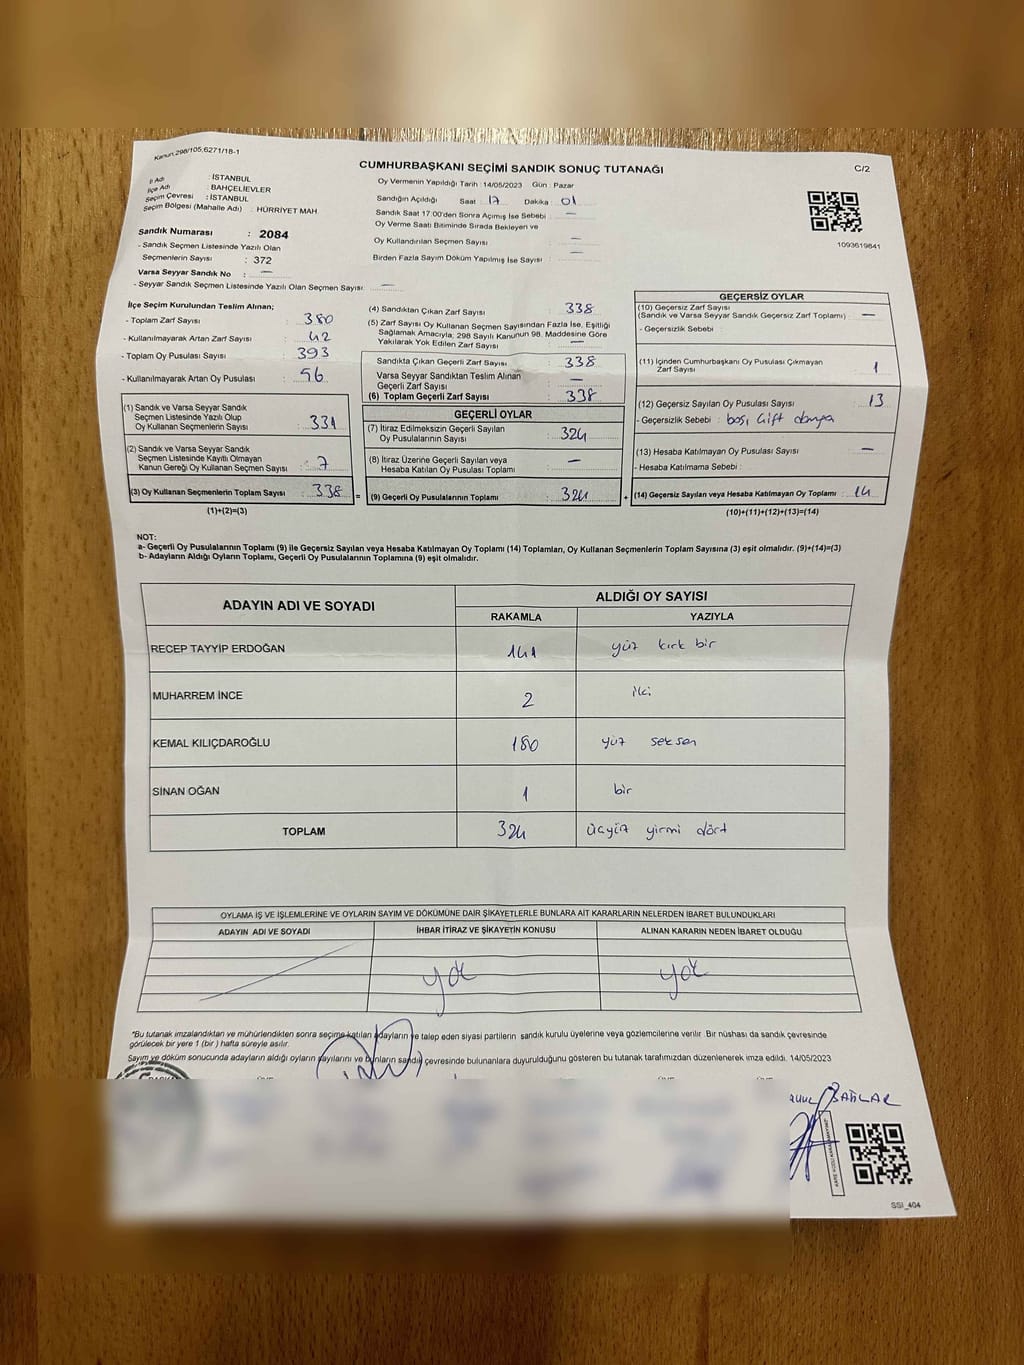 Kanun,298/105,6271/18-1
CUMHURBAŞKANI SEÇİMİ SANDIK SONUÇ TUTANAĞI
C/2
İl Adı : İSTANBUL
İlçe Adı : BAHÇELİEVLER
Seçim Çevresi : İSTANBUL
Seçim Bölgesi (Mahalle Adı) : HÜRRİYET MAH.
Sandık Numarası : 2084
- Sandık Seçmen Listesinde Yazılı Olan
Seçmenlerin Sayısı : 372
Varsa Seyyar Sandık No : —
- Seyyar Sandık Seçmen Listesinde Yazılı Olan Seçmen Sayısı: —
Oy Vermenin Yapıldığı Tarih : 14/05/2023 Gün : Pazar
Sandığın Açıldığı Saat : 17 Dakika : 01
Sandık Saat 17:00'den Sonra Açılmış İse Sebebi : —
Oy Verme Saati Bitiminde Sırada Bekleyen ve
Oy Kullandırılan Seçmen Sayısı : —
Birden Fazla Sayım Döküm Yapılmış İse Sayısı : —
1093619841
İlçe Seçim Kurulundan Teslim Alınan;
- Toplam Zarf Sayısı : 380
- Kullanılmayarak Artan Zarf Sayısı : 42
- Toplam Oy Pusulası Sayısı : 393
- Kullanılmayarak Artan Oy Pusulası : 56
(1) Sandık ve Varsa Seyyar Sandık
Seçmen Listesinde Yazılı Olup
Oy Kullanan Seçmenlerin Sayısı : 331
(2) Sandık ve Varsa Seyyar Sandık
Seçmen Listesinde Kayıtlı Olmayan
Kanun Gereği Oy Kullanan Seçmen Sayısı : 7
(3) Oy Kullanan Seçmenlerin Toplam Sayısı : 338 =
(1)+(2)=(3)
(4) Sandıktan Çıkan Zarf Sayısı : 338
(5) Zarf Sayısı Oy Kullanan Seçmen Sayısından Fazla İse, Eşitliği
Sağlamak Amacıyla, 298 Sayılı Kanunun 98. Maddesine Göre
Yakılarak Yok Edilen Zarf Sayısı : —
Sandıkta Çıkan Geçerli Zarf Sayısı : 338
Varsa Seyyar Sandıktan Teslim Alınan
Geçerli Zarf Sayısı : —
(6) Toplam Geçerli Zarf Sayısı : 338
GEÇERLİ OYLAR
(7) İtiraz Edilmeksizin Geçerli Sayılan
Oy Pusulalarının Sayısı : 324
(8) İtiraz Üzerine Geçerli Sayılan veya
Hesaba Katılan Oy Pusulası Toplamı : —
(9) Geçerli Oy Pusulalarının Toplamı : 324 +
GEÇERSİZ OYLAR
(10) Geçersiz Zarf Sayısı
(Sandık ve Varsa Seyyar Sandık Geçersiz Zarf Toplamı) : —
- Geçersizlik Sebebi :
(11) İçinden Cumhurbaşkanı Oy Pusulası Çıkmayan
Zarf Sayısı : 1
(12) Geçersiz Sayılan Oy Pusulası Sayısı : 13
- Geçersizlik Sebebi : boş, çift damga
(13) Hesaba Katılmayan Oy Pusulası Sayısı : —
- Hesaba Katılmama Sebebi :
(14) Geçersiz Sayılan veya Hesaba Katılmayan Oy Toplamı : 14
(10)+(11)+(12)+(13)=(14)
NOT:
a- Geçerli Oy Pusulalarının Toplamı (9) ile Geçersiz Sayılan veya Hesaba Katılmayan Oy Toplamı (14) Toplamları, Oy Kullanan Seçmenlerin Toplam Sayısına (3) eşit olmalıdır. (9)+(14)=(3)
b- Adayların Aldığı Oyların Toplamı, Geçerli Oy Pusulalarının Toplamına (9) eşit olmalıdır.
ADAYIN ADI VE SOYADI ALDIĞI OY SAYISI
RAKAMLA YAZIYLA
RECEP TAYYİP ERDOĞAN 141 yüz kırk bir
MUHARREM İNCE 2 iki
KEMAL KILIÇDAROĞLU 180 yüz seksen
SİNAN OĞAN 1 bir
TOPLAM 324 üçyüz yirmi dört
OYLAMA İŞ VE İŞLEMLERİNE VE OYLARIN SAYIM VE DÖKÜMÜNE DAİR ŞİKAYETLERLE BUNLARA AİT KARARLARIN NELERDEN İBARET BULUNDUKLARI
ADAYIN ADI VE SOYADI İHBAR İTİRAZ VE ŞİKAYETİN KONUSU ALINAN KARARIN NEDEN İBARET OLDUĞU
yok yok
*Bu tutanak imzalandıktan ve mühürlendikten sonra seçime katılan adayların ve talep eden siyasi partilerin sandık kurulu üyelerine veya gözlemcilerine verilir. Bir nüshası da sandık çevresinde
görülecek bir yere 1 (bir) hafta süreyle asılır.
Sayım ve döküm sonucunda adayların aldığı oyların sayılarını ve bunların sandık çevresinde bulunanlara duyurulduğunu gösteren bu tutanak tarafımızdan düzenlenerek imza edildi. 14/05/2023
SSI_404